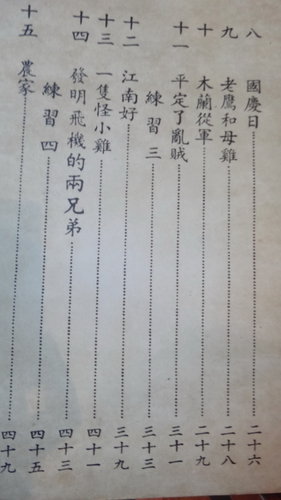 八 國慶日 二十六
九 老鷹和母雞 二十八
十 木蘭從軍 二十九
十一 平定了亂賊 三十一
練習三 三十三
十二 江南好 三十九
十三 一隻怪小雞 四十一
十四 發明飛機的兩兄弟 四十三
練習四 四十五
十五 農家 四十九